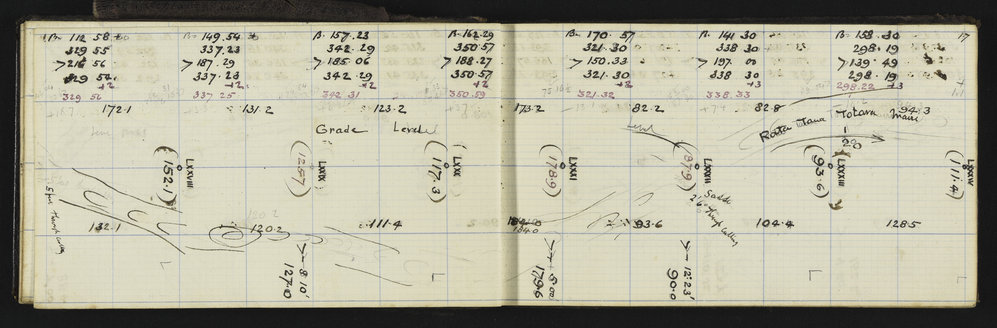 B. 112 58 B. 149.54 B. 157.23 B. 162.29 B. 170.57 B. 141 30 B. 158.30 17
329 55 337.23 342.29 350.57 321.30 338 30 298.19
> 216 56 > 187.29 > 185.06 > 188.27 > 150.33 > 197. 00 > 139.49
329 54 337.23 342.29 350.57 321.30 338 30 298.19
+2 +2 +2 +2 +2 +3 +3
329 56 337 25 342 31 350.59 321.32 338.33 298.22
172.1 131.2 123.2 173.2 82.2 82.8 94.3
Grade Level
Level
Rata Tawa Totara Maire
1
20
(152.1) LXXVIII
(125.7) LXXIX
(117.3) LXXX
(178.9) LXXXI
(87.9) LXXXII
(93.6) LXXXIII
(111.4) LXXXIV
Saddle
2'6" through cutting
5 feet through cutting
132.1 120.2 111.4 93.6 104.4 128.5
120.2
184.0
8.10'
127.0
8.00'
179.6
12.23'
90.0
L L L L